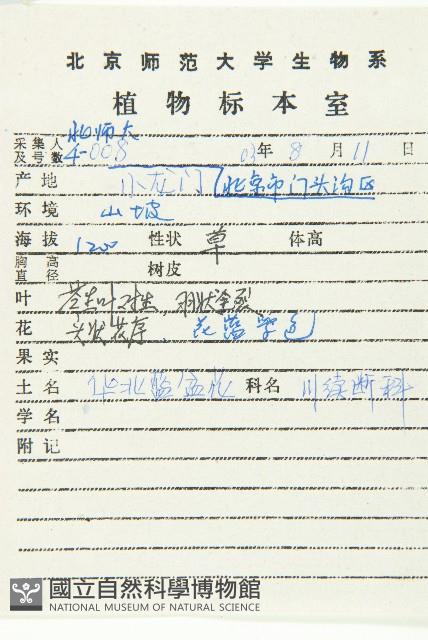 北京师范大学生物系
植物标本室
采集人及号数 北师大 4-008 03年8月11日
产地 小龙门 北京市门头沟区
环境 山坡
海拔 1200 性状 草 体高
胸高直径 树皮
叶 茎生叶对生 羽状全裂
花 头状花序、花蓝紫色
果实
土名 华北蓝盆花 科名 川续断科
学名
附记
國立自然科學博物館
NATIONAL MUSEUM OF NATURAL SCIENCE